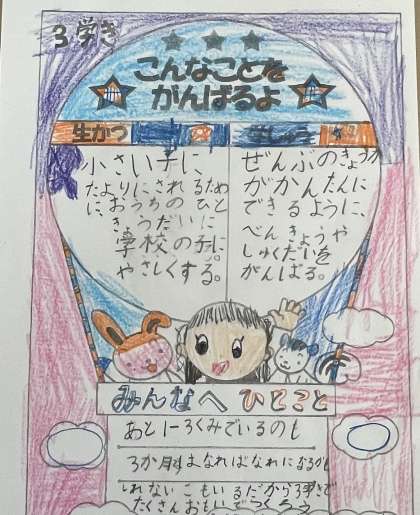 3学き
こんなことを
がんばるよ
生かつ
小さい子に、
たよりにされるため
に、おうちのひと
きょうだいに
学校の子に
やさしくする。
ぜんぶのきょうか
がかんたんに
できるように、
べんきょうや
しゅくだいを
がんばる。
みんなへ ひとこと
あと一ろくみでいるのも
3か月
はなればなれになるかも
しれないこもいるだから3学きで
たくさんおもいでつくろう